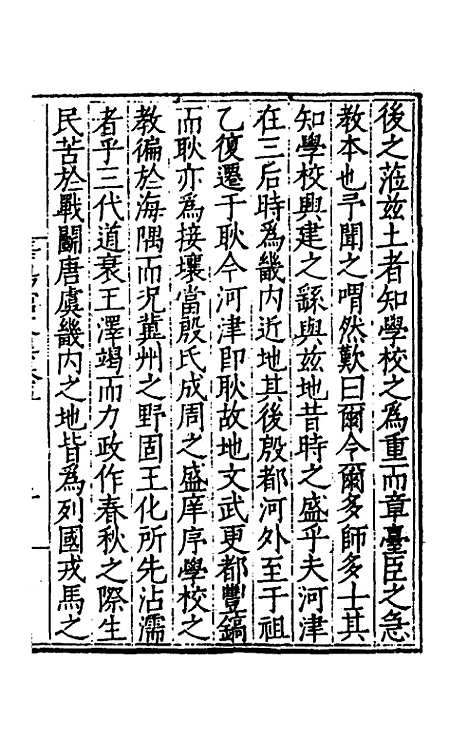 後之蒞兹土者知學校之為重而章臺臣之急
教本也予聞之喟然歎曰爾今爾多師多士其
知學校興建之繇與兹地昔時之盛乎夫河津
在三后時為畿内近地其後殷都河外至于祖
乙復遷于耿今河津即耿故地文武更都豐鎬
而耿亦為接壤當殷氏成周之盛庠序學校之
教徧於海隅而況冀州之野固王化所先沾濡
者乎三代道衰王澤竭而力政作春秋之際生
民苦於戰鬬唐虞畿内之地皆為列國戎馬之